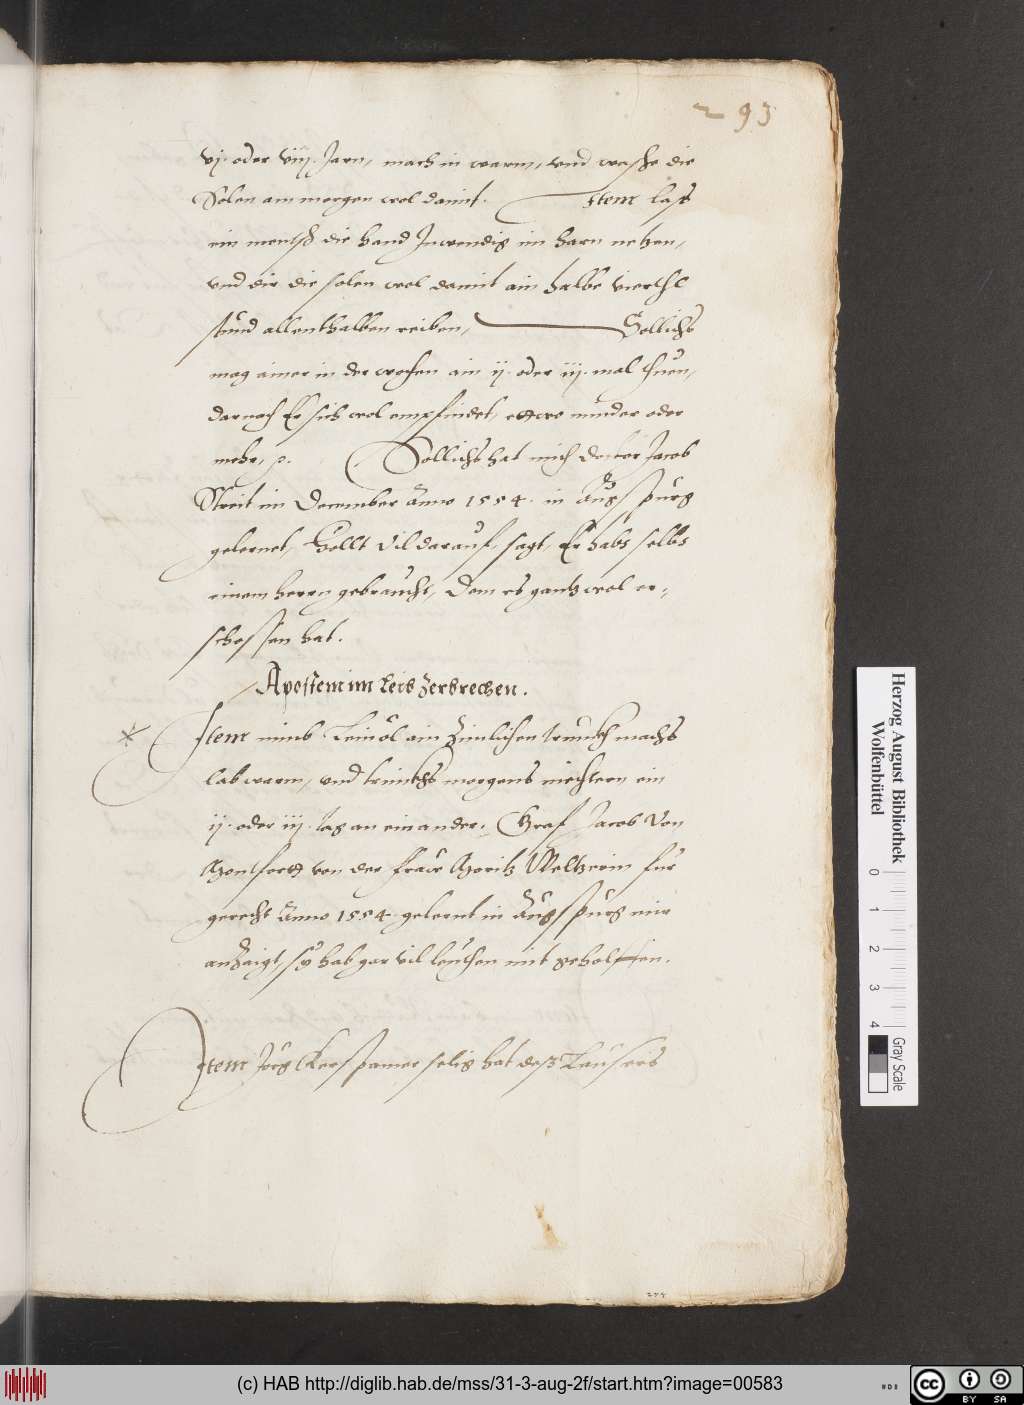 293
vj. oder viij. Jarn, mach in warm, und wasche die
Solen am morgen wol damit. Item lass
ein mensch die hand Inwendig im harn netzen,
und dir die solen wol damit ain halbe vierthl
stund allenthalben reiben, Sollichs
mag ainer in der wochen ain ij. oder iij. mal thuen,
darnach Er sich wol empfindet, ettwo minder oder
mehr, p. Sollichs hat mich doctor Jacob
Streit im December Anno 1554. in Augspurg
gelernet, Hellt vil darauf, sagt, Er habs selbs
einem herrn gebraucht, Dem es gantz wol er-
schossen hat.
Apostem im Leib zerbrechen.
Item nimb Leinöl ain zimlichen trunckh machs
lab warm, und trinckhs morgens niechtern ein
ij. oder iij. tag an einander. Graf Jacob von
Montfortt von der fraw Moritz Weltzerin fur
gerecht Anno 1554 gelernt in Augspurg mir
anzaigt, sy hab gar vil leuthen mit geholffen.
Item Jörg selig hat deß
Herzog August Bibliothek
Wolfenbüttel
0 1 2 3 4
Gray Scale
(c) HAB http://diglib.hab.de/mss/31-3-aug-2f/start.htm?image=00583
cc BY SA